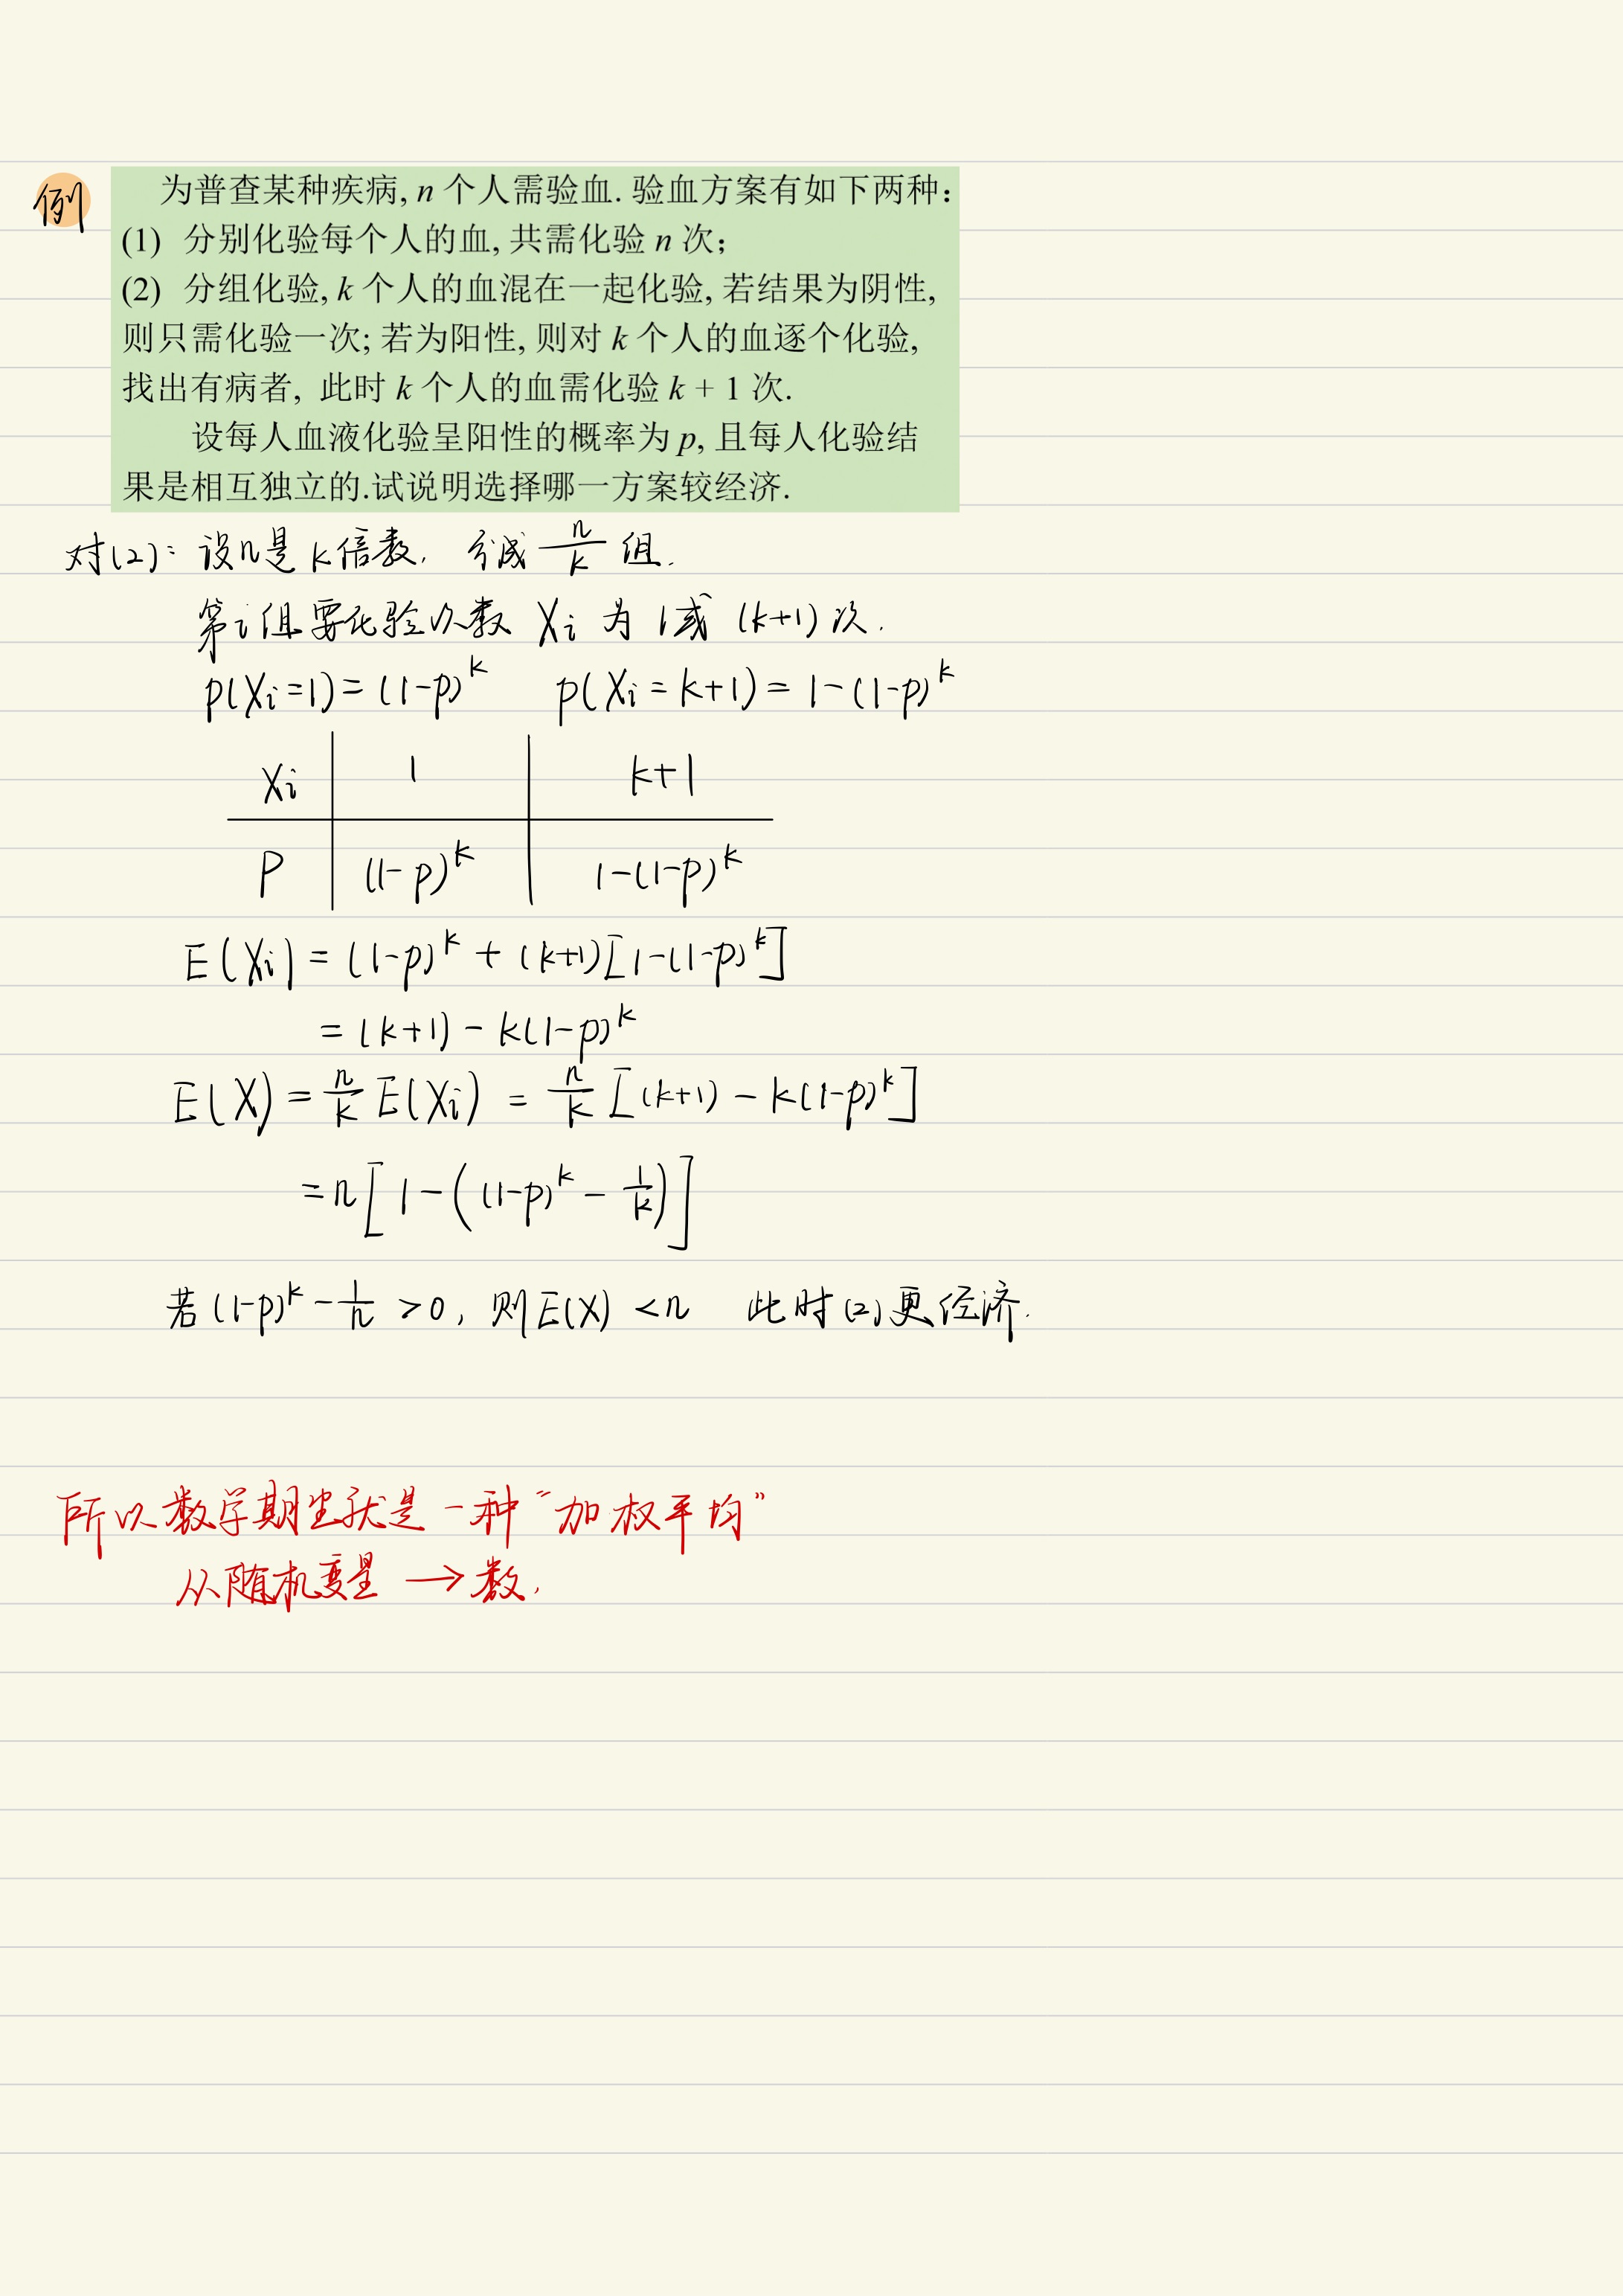 例
为普查某种疾病, n 个人需验血. 验血方案有如下两种:
(1) 分别化验每个人的血, 共需化验 n 次;
(2) 分组化验, k 个人的血混在一起化验, 若结果为阴性,
则只需化验一次; 若为阳性, 则对 k 个人的血逐个化验,
找出有病者, 此时 k 个人的血需化验 k + 1 次.
设每人血液化验呈阳性的概率为 p, 且每人化验结
果是相互独立的.试说明选择哪一方案较经济.
对(2): 设n是k倍数, 分成 n/k 组.
第i组要化验次数 Xi 为 1或 (k+1) 次.
p(Xi=1)=(1-p)^k p(Xi=k+1)=1-(1-p)^k
Xi 1 k+1
P (1-p)^k 1-(1-p)^k
E(Xi)=(1-p)^k+(k+1)[1-(1-p)^k]
=(k+1)-k(1-p)^k
E(X)=n/k E(Xi)=n/k[(k+1)-k(1-p)^k]
=n[1-((1-p)^k-1/k)]
若(1-p)^k-1/n>0, 则E(X)<n 此时(2)更经济.
所以数学期望就是一种“加权平均”
从随机变量→数.